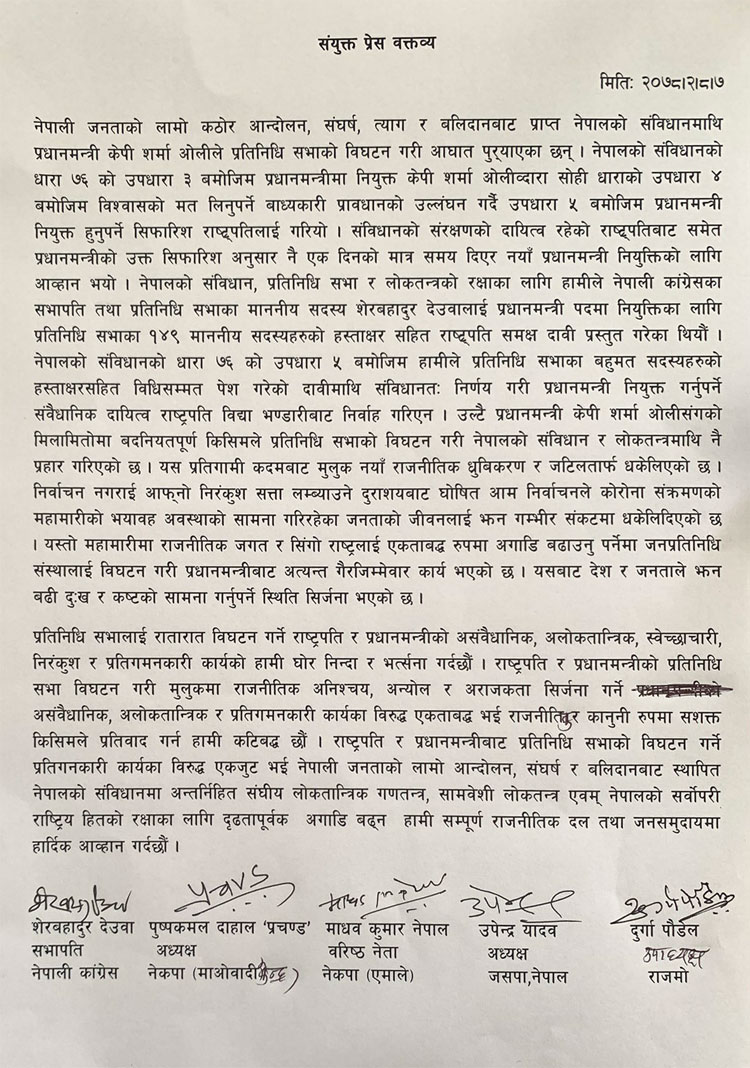 संयुक्त प्रेस वक्तव्य
मितिः २०७८।२।८।७
नेपाली जनताको लामो कठोर आन्दोलन, संघर्ष, त्याग र बलिदानबाट प्राप्त नेपालको संविधानमाथि
प्रधानमन्त्री केपी शर्मा ओलीले प्रतिनिधि सभाको विघटन गरी आघात पुर्‍याएका छन् । नेपालको संविधानको
धारा ७६ को उपधारा ३ बमोजिम प्रधानमन्त्रीमा नियुक्त केपी शर्मा ओलीव्दारा सोही धाराको उपधारा ४
बमोजिम विश्वासको मत लिनुपर्ने बाध्यकारी प्रावधानको उल्लंघन गर्दै उपधारा ५ बमोजिम प्रधानमन्त्री
नियुक्त हुनुपर्ने सिफारिश राष्ट्रपतिलाई गरियो । संविधानको संरक्षणको दायित्व रहेको राष्ट्रपतिबाट समेत
प्रधानमन्त्रीको उक्त सिफारिश अनुसार नै एक दिनको मात्र समय दिएर नयाँ प्रधानमन्त्री नियुक्तिको लागि
आव्हान भयो । नेपालको संविधान, प्रतिनिधि सभा र लोकतन्त्रको रक्षाका लागि हामीले नेपाली कांग्रेसका
सभापति तथा प्रतिनिधि सभाका माननीय सदस्य शेरबहादुर देउवालाई प्रधानमन्त्री पदमा नियुक्तिका लागि
प्रतिनिधि सभाका १४९ माननीय सदस्यहरुको हस्ताक्षर सहित राष्ट्रपति समक्ष दावी प्रस्तुत गरेका थियौं ।
नेपालको संविधानको धारा ७६ को उपधारा ५ बमोजिम हामीले प्रतिनिधि सभाका बहुमत सदस्यहरुको
हस्ताक्षरसहित विधिसम्मत पेश गरेको दावीमाथि संविधानतः निर्णय गरी प्रधानमन्त्री नियुक्त गर्नुपर्ने
संवैधानिक दायित्व राष्ट्रपति विद्या भण्डारीबाट निर्वाह गरिएन । उल्टै प्रधानमन्त्री केपी शर्मा ओलीसंगको
मिलामितोमा बदनियतपूर्ण किसिमले प्रतिनिधि सभाको विघटन गरी नेपालको संविधान र लोकतन्त्रमाथि नै
प्रहार गरिएको छ । यस प्रतिगामी कदमबाट मुलुक नयाँ राजनीतिक धुबिकरण र जटिलतार्फ धकेलिएको छ ।
निर्वाचन नगराई आफ्नो निरंकुश सत्ता लम्ब्याउने दुराशयबाट घोषित आम निर्वाचनले कोरोना संक्रमणको
महामारीको भयावह अवस्थाको सामना गरिरहेका जनताको जीवनलाई झन गम्भीर संकटमा धकेलिदिएको छ
। यस्तो महामारीमा राजनीतिक जगत र सिंगो राष्ट्रलाई एकताबद्ध रुपमा अगाडि बढाउनु पर्नेमा जनप्रतिनिधि
संस्थालाई विघटन गरी प्रधानमन्त्रीबाट अत्यन्त गैरजिम्मेवार कार्य भएको छ । यसबाट देश र जनताले झन
बढी दुःख र कष्टको सामना गर्नुपर्ने स्थिति सिर्जना भएको छ ।
प्रतिनिधि सभालाई रातारात विघटन गर्ने राष्ट्रपति र प्रधानमन्त्रीको असंवैधानिक, अलोकतान्त्रिक, स्वेच्छाचारी,
निरंकुश र प्रतिगमनकारी कार्यको हामी घोर निन्दा र भर्त्सना गर्दछौं । राष्ट्रपति र प्रधानमन्त्रीको प्रतिनिधि
सभा विघटन गरी मुलुकमा राजनीतिक अनिश्चय, अन्योल र अराजकता सिर्जना गर्ने
असंवैधानिक, अलोकतान्त्रिक र प्रतिगमनकारी कार्यका विरुद्ध एकताबद्ध भई र कानुनी रुपमा सशक्त
किसिमले प्रतिवाद गर्न हामी कटिबद्ध छौं । राष्ट्रपति र प्रधानमन्त्रीबाट प्रतिनिधि सभाको विघटन गर्ने
प्रतिगनकारी कार्यका विरुद्ध एकजुट भई नेपाली जनताको लामो आन्दोलन, संघर्ष र बलिदानबाट स्थापित
नेपालको संविधानमा अन्तर्निहित संघीय लोकतान्त्रिक गणतन्त्र, सामवेशी लोकतन्त्र एवम् नेपालको सर्वोपरी
राष्ट्रिय हितको रक्षाका लागि दृढतापूर्वक अगाडि बढ्न हामी सम्पूर्ण राजनीतिक दल तथा जनसमुदायमा
हार्दिक आव्हान गर्दछौं ।
शेरबहादुर देउवा पुष्पकमल दाहाल ‘प्रचण्ड’ माधव कुमार नेपाल उपेन्द्र यादव दुर्गा पौडेल
सभापति अध्यक्ष वरिष्ठ नेता अध्यक्ष उपाध्यक्ष
नेपाली कांग्रेस नेकपा (माओवादी केन्द्र) नेकपा (एमाले) जसपा,नेपाल राजमो